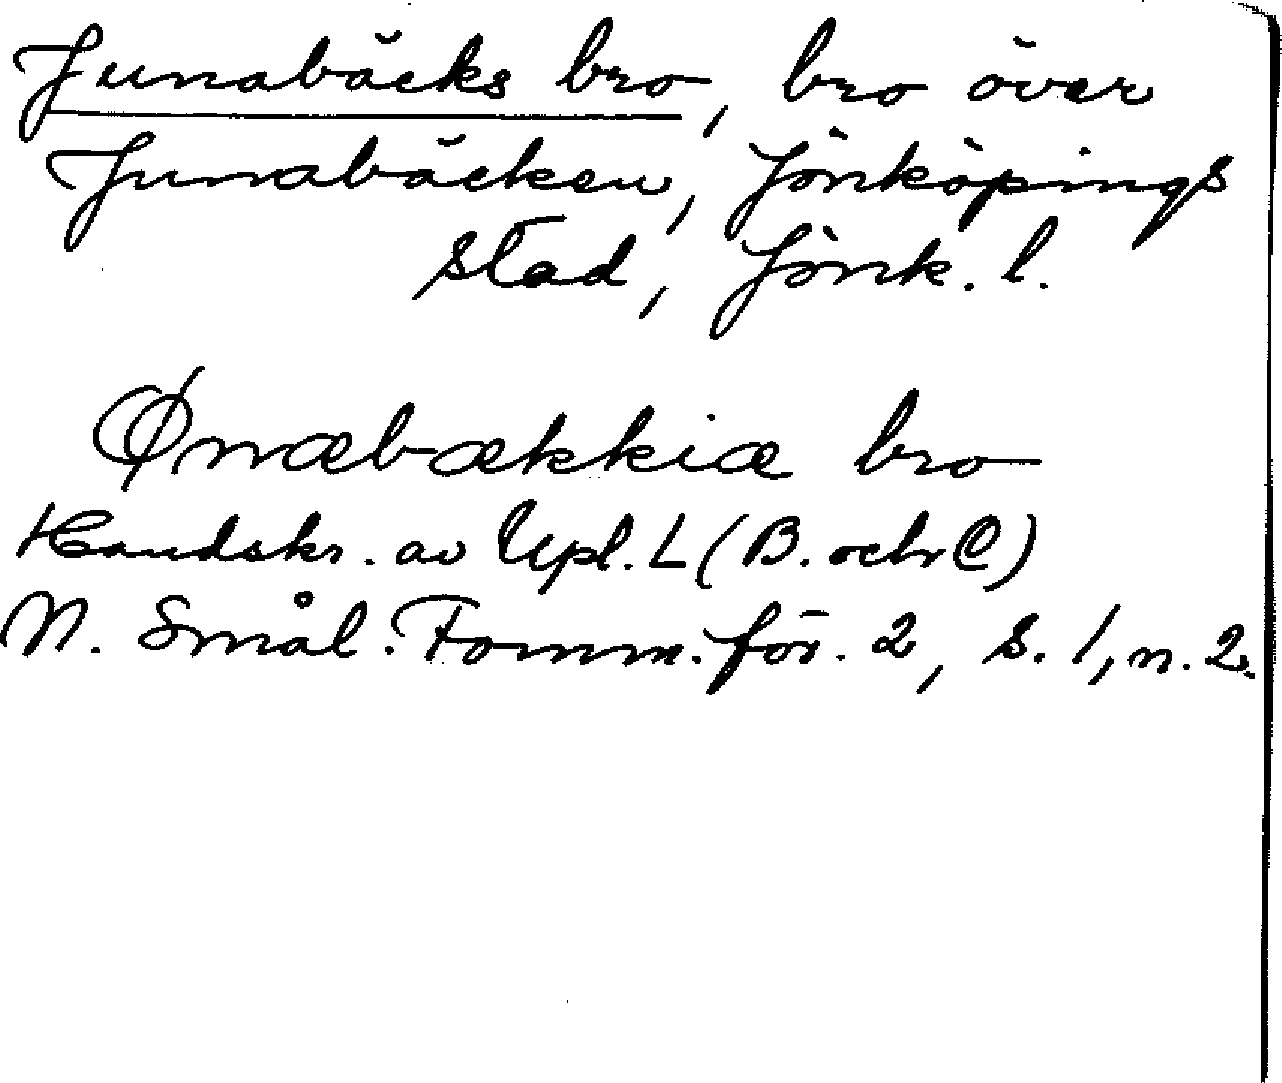 Junabäcks bro, bro över
Junabäcken, Jönköpings
stad, Jönk. l.
Ønæbækkiæ bro
Handskr. av Upl. L (B. och C)
N. Smål. Fornm. för. 2, s. 1, n. 2.